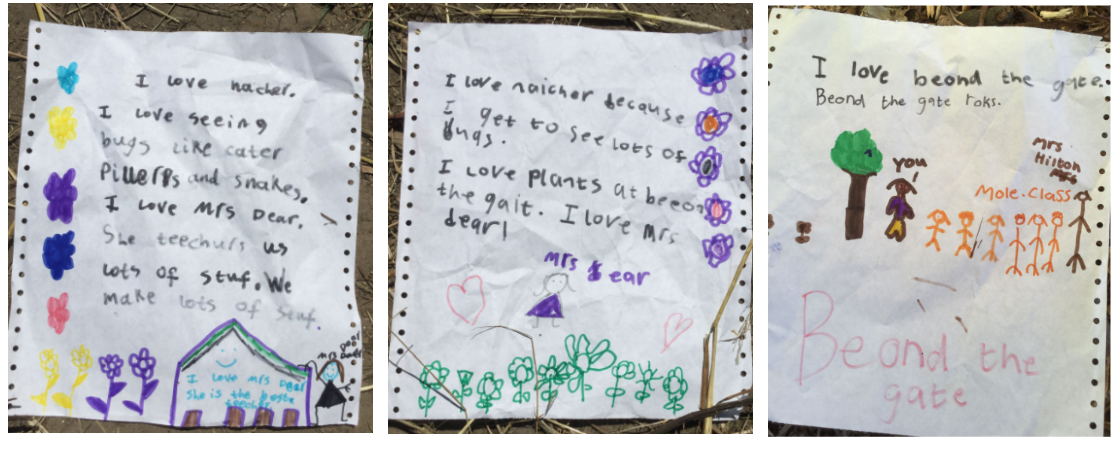 I love nacher.
I love seeing
bugs like cater
Pillerrs and snakes.
I love Mrs Dear.
She teechurs us
lots of stuf. We
make lots of stuf.
mrs Dear
I love mrs Dear
She is the beste
teecher
I love naicher because
I get to see lots of
bugs.
I love plants at beeon
the gait. I love Mrs
dear!
mrs Dear
I love beond the gate.
Beond the gate roks.
you
!
Mrs
Hilton
Mole. Class
Beond the
gate